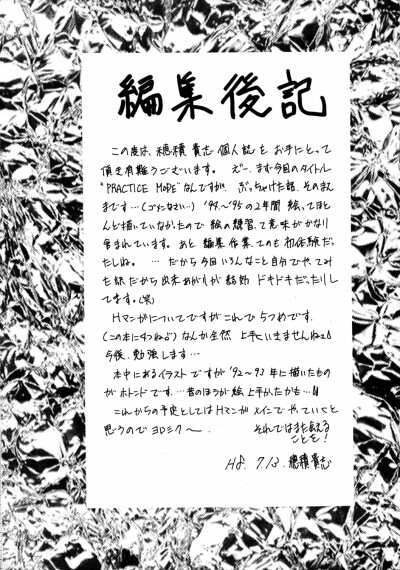 編集後記
この度は、穂積貴志個人誌をお手にとって
頂き有難うございます。えー、まず今回のタイトル
"PRACTICE MODE"なんですが、ぶっちゃけた話、そのまん
まです…(ゴメンなさい…) '94〜'95の2年間絵ってほと
んど描いていなかったので絵の練習って意味がかなり
含まれています。あと編集作業ってのも初体験だっ
たしね。…だから今回いろんなこと自分でやってみ
た訳だから出来あがりが結構ドキドキだったりし
てます。(笑)
Hマンガについてですがこれで5つめです。
(この本に4つねっ)なんか全然上手くいきませんねェ
今後、勉強します…
本中にあるイラストですが'92〜93年に描いたもの
がホトンドです…昔のほうが絵上手かったかも…
これからの予定としてはHマンガメインでやっていくと
思うのでヨロシク〜
それではまた会える
ことを!
H8. 7.13. 穂積貴志